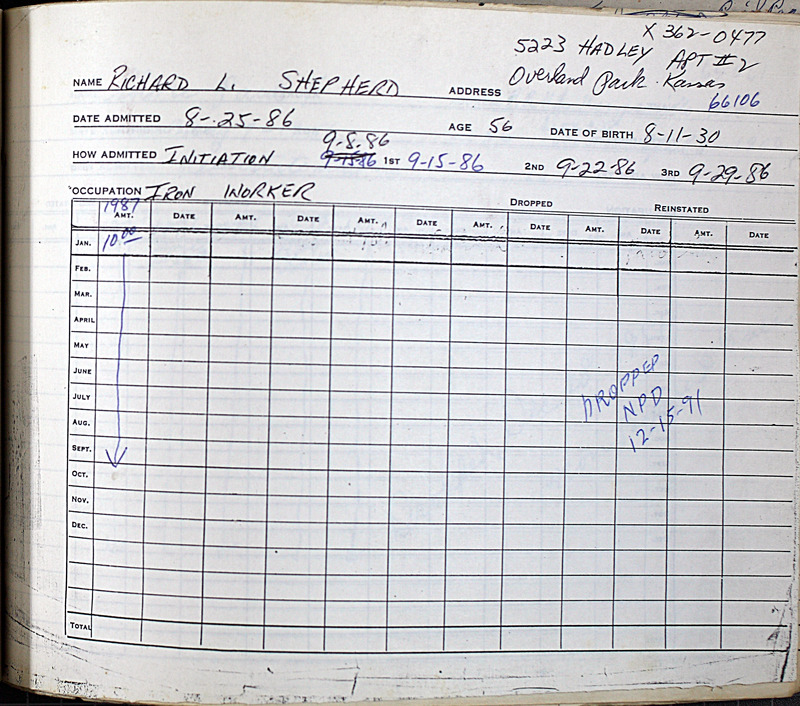 X 362-0477
5223 HADLEY APT #2
NAME RICHARD L. SHEPHERD ADDRESS Overland Park Kansas
66106
DATE ADMITTED 8-25-86 AGE 56 DATE OF BIRTH 8-11-30
9-8-86
HOW ADMITTED INITIATION 9-15-86 1ST 9-15-86 2ND 9-22-86 3RD 9-29-86
OCCUPATION IRON WORKER
DROPPED REINSTATED
1987
AMT. DATE AMT. DATE AMT. DATE AMT. DATE AMT. DATE AMT. DATE
JAN. 10.00
FEB.
MAR.
APRIL
MAY
JUNE
JULY
AUG.
SEPT.
OCT.
NOV.
DEC.
TOTAL
DROPPED
NPD
12-15-91